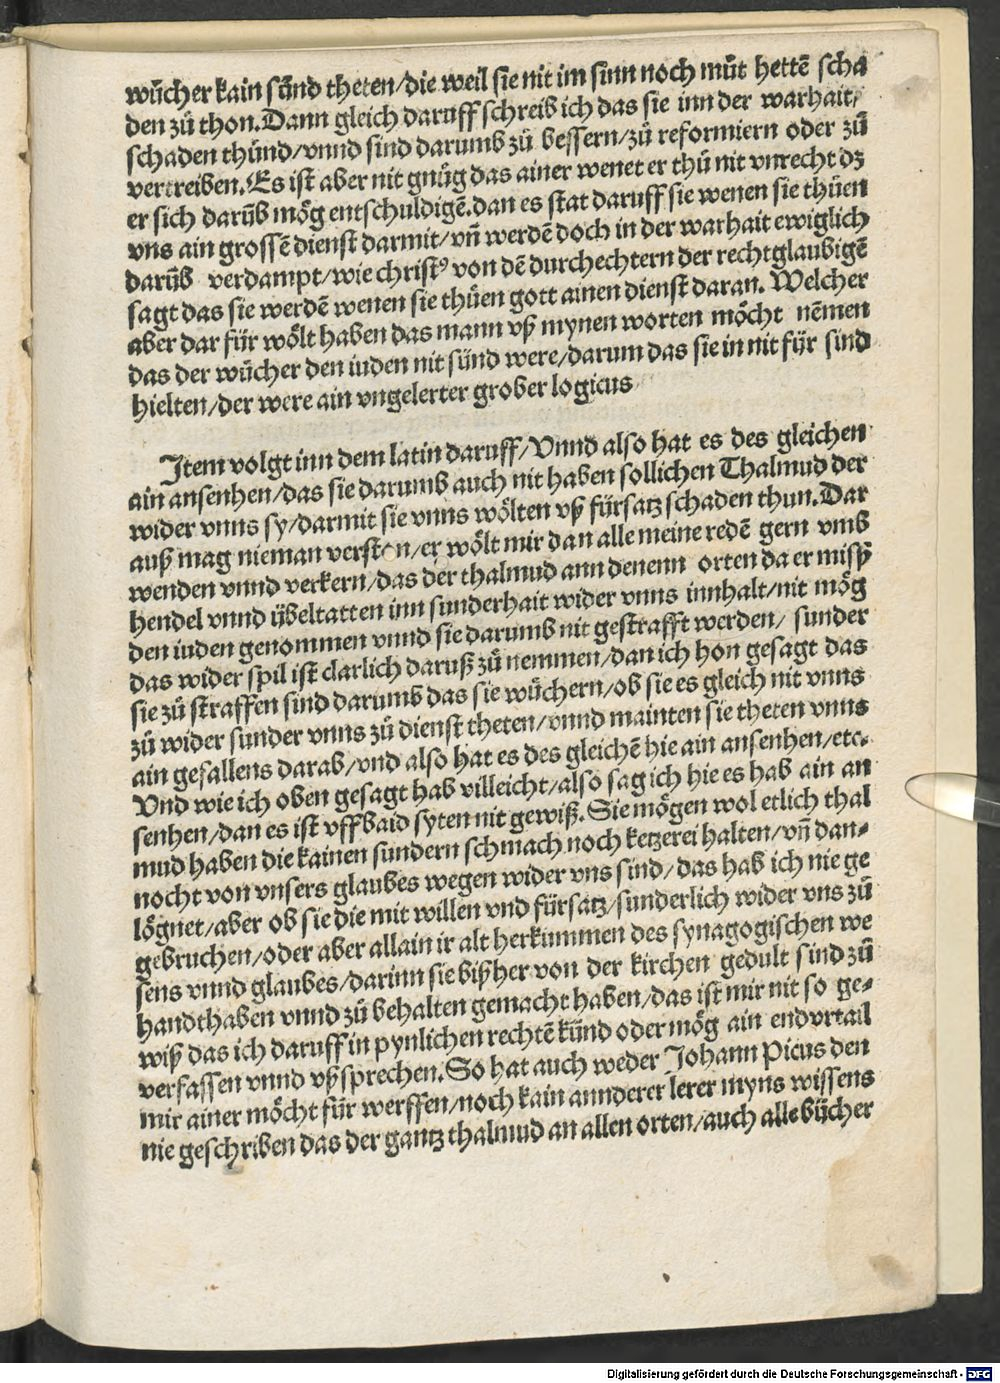 wůcher kain sünd theten/die weil sie nit im sinn noch můt hettē scha
den zů thon.Dann gleich daruff schreib ich das sie inn der warhait/
schaden thünd/vnnd sind darumb zů bessern/zů reformiern oder zů
vertreiben.Es ist aber nit gnůg das ainer wenet er thů nit vnrecht dz
er sich darūb mög entschuldigē.dan es stat daruff sie wenen sie thüen
vns ain grossē dienst darmit/vn̄ werdē doch in der warhait ewiglich
darūb verdampt/wie christꝰ von dē durchechtern der rechtglaubigē
sagt das sie werdē wenen sie thüen gott ainen dienst daran. Welcher
aber dar für wölt haben das mann vß mynen worten möcht nēmen
das der wůcher den iuden nit sünd were/darum das sie in nit für sind
hielten/der were ain vngelerter grober logicus
Item volgt inn dem latin daruff/Vnnd also hat es des gleichen
ain ansenhen/das sie darumb auch nit haben sollichen Thalmud der
wider vnns sy/darmit sie vnns wölten vß fürsatz schaden thun.Dar
auß mag nieman versten/er wölt mir dan alle meine redē gern vmb
wenden vnnd verkern/das der thalmud ann denenn orten da er mißß
hendel vnnd ÿbeltatten inn sunderhait wider vnns innhalt/nit mög
den iuden genommen vnnd sie darumb nit gestrafft werden/ sunder
das wider spil ist clarlich daruß zů nemmen/dan ich hon gesagt das
sie zů straffen sind darumb das sie wůchern/ob sie es gleich nit vnns
zů wider sunder vnns zů dienst theten/vnnd mainten sie theten vnns
ain gefallens darab/vnd also hat es des gleichē hie ain ansenhen/etc.
Vnd wie ich oben gesagt hab villeicht/also sag ich hie es hab ain an
senhen/dan es ist vff baid syten nit gewiß.Sie mögen wol etlich thal
mud haben die kainen sundern schmach noch ketzerei halten/vn̄ dan⸗
nocht von vnsers glaubes wegen wider vns sind/das hab ich nie ge
lögnet/aber ob sie die mit willen vnd fürsatz/sunderlich wider vns zů
gebruchen/oder aber allain ir alt herkummen des synagogischen we
sens vnnd glaubes/darinn sie bißher von der kirchen gedult sind zů
handthaben vnnd zů behalten gemacht haben/das ist mir nit so ge⸗
wiß das ich daruff in pynlichen rechtē künd oder mög ain endvrtail
verfassen vnnd vßsprechen.So hat auch weder Johann Picus den
mir ainer möcht für werffen/noch kain annderer lerer myns wissens
nie geschriben das der gantz thalmud an allen orten/auch alle bücher
Digitalisierung gefördert durch die Deutsche Forschungsgemeinschaft - DFG